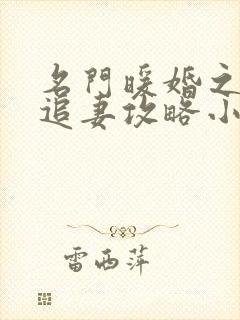 名門暖婚之
追妻攻略小
雷西萍